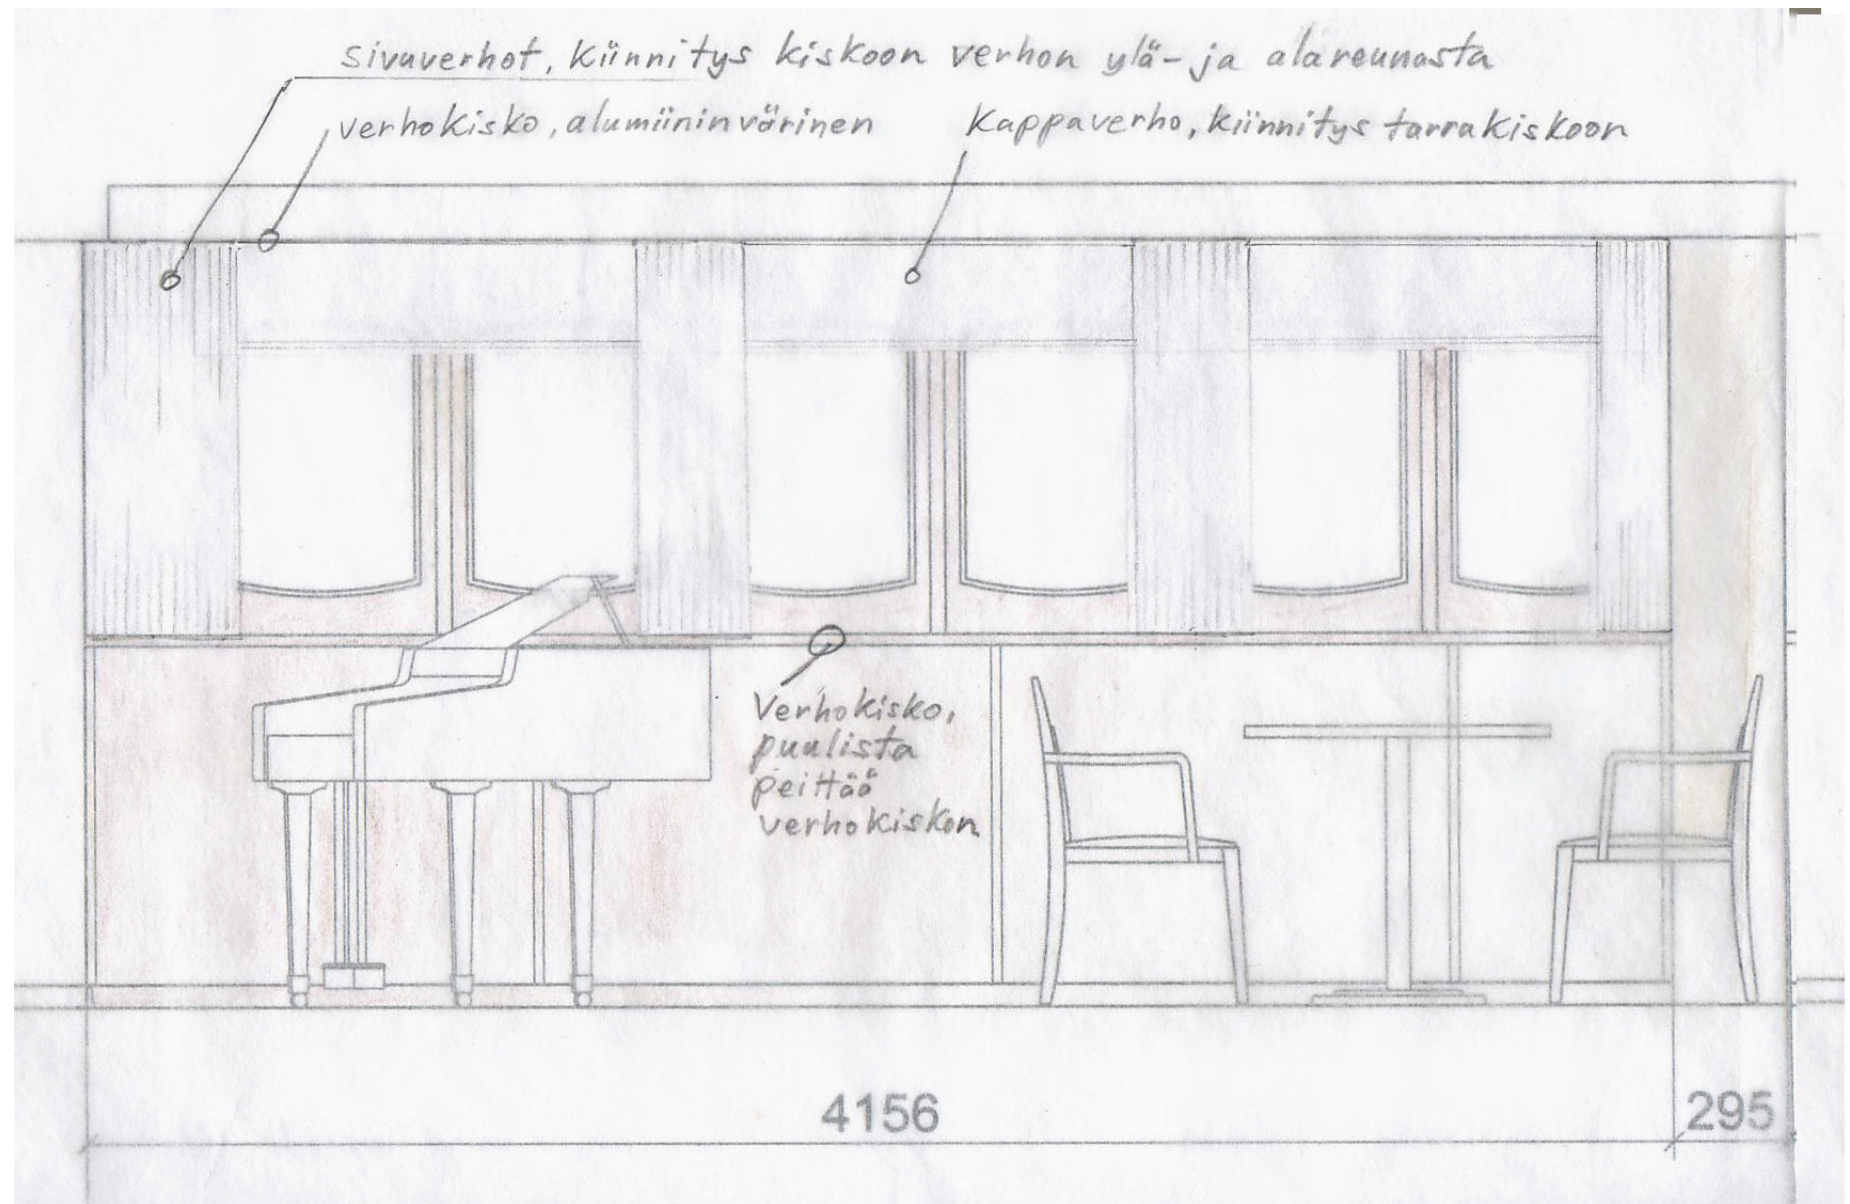 Sivuverhot, kiinnitys kiskoon verhon ylä- ja alareunasta
verhokisko, alumiininvärinen
Kappaverho, kiinnitys tarrakiskoon
Verhokisko,
puulista
peittää
verhokiskon
4156
295